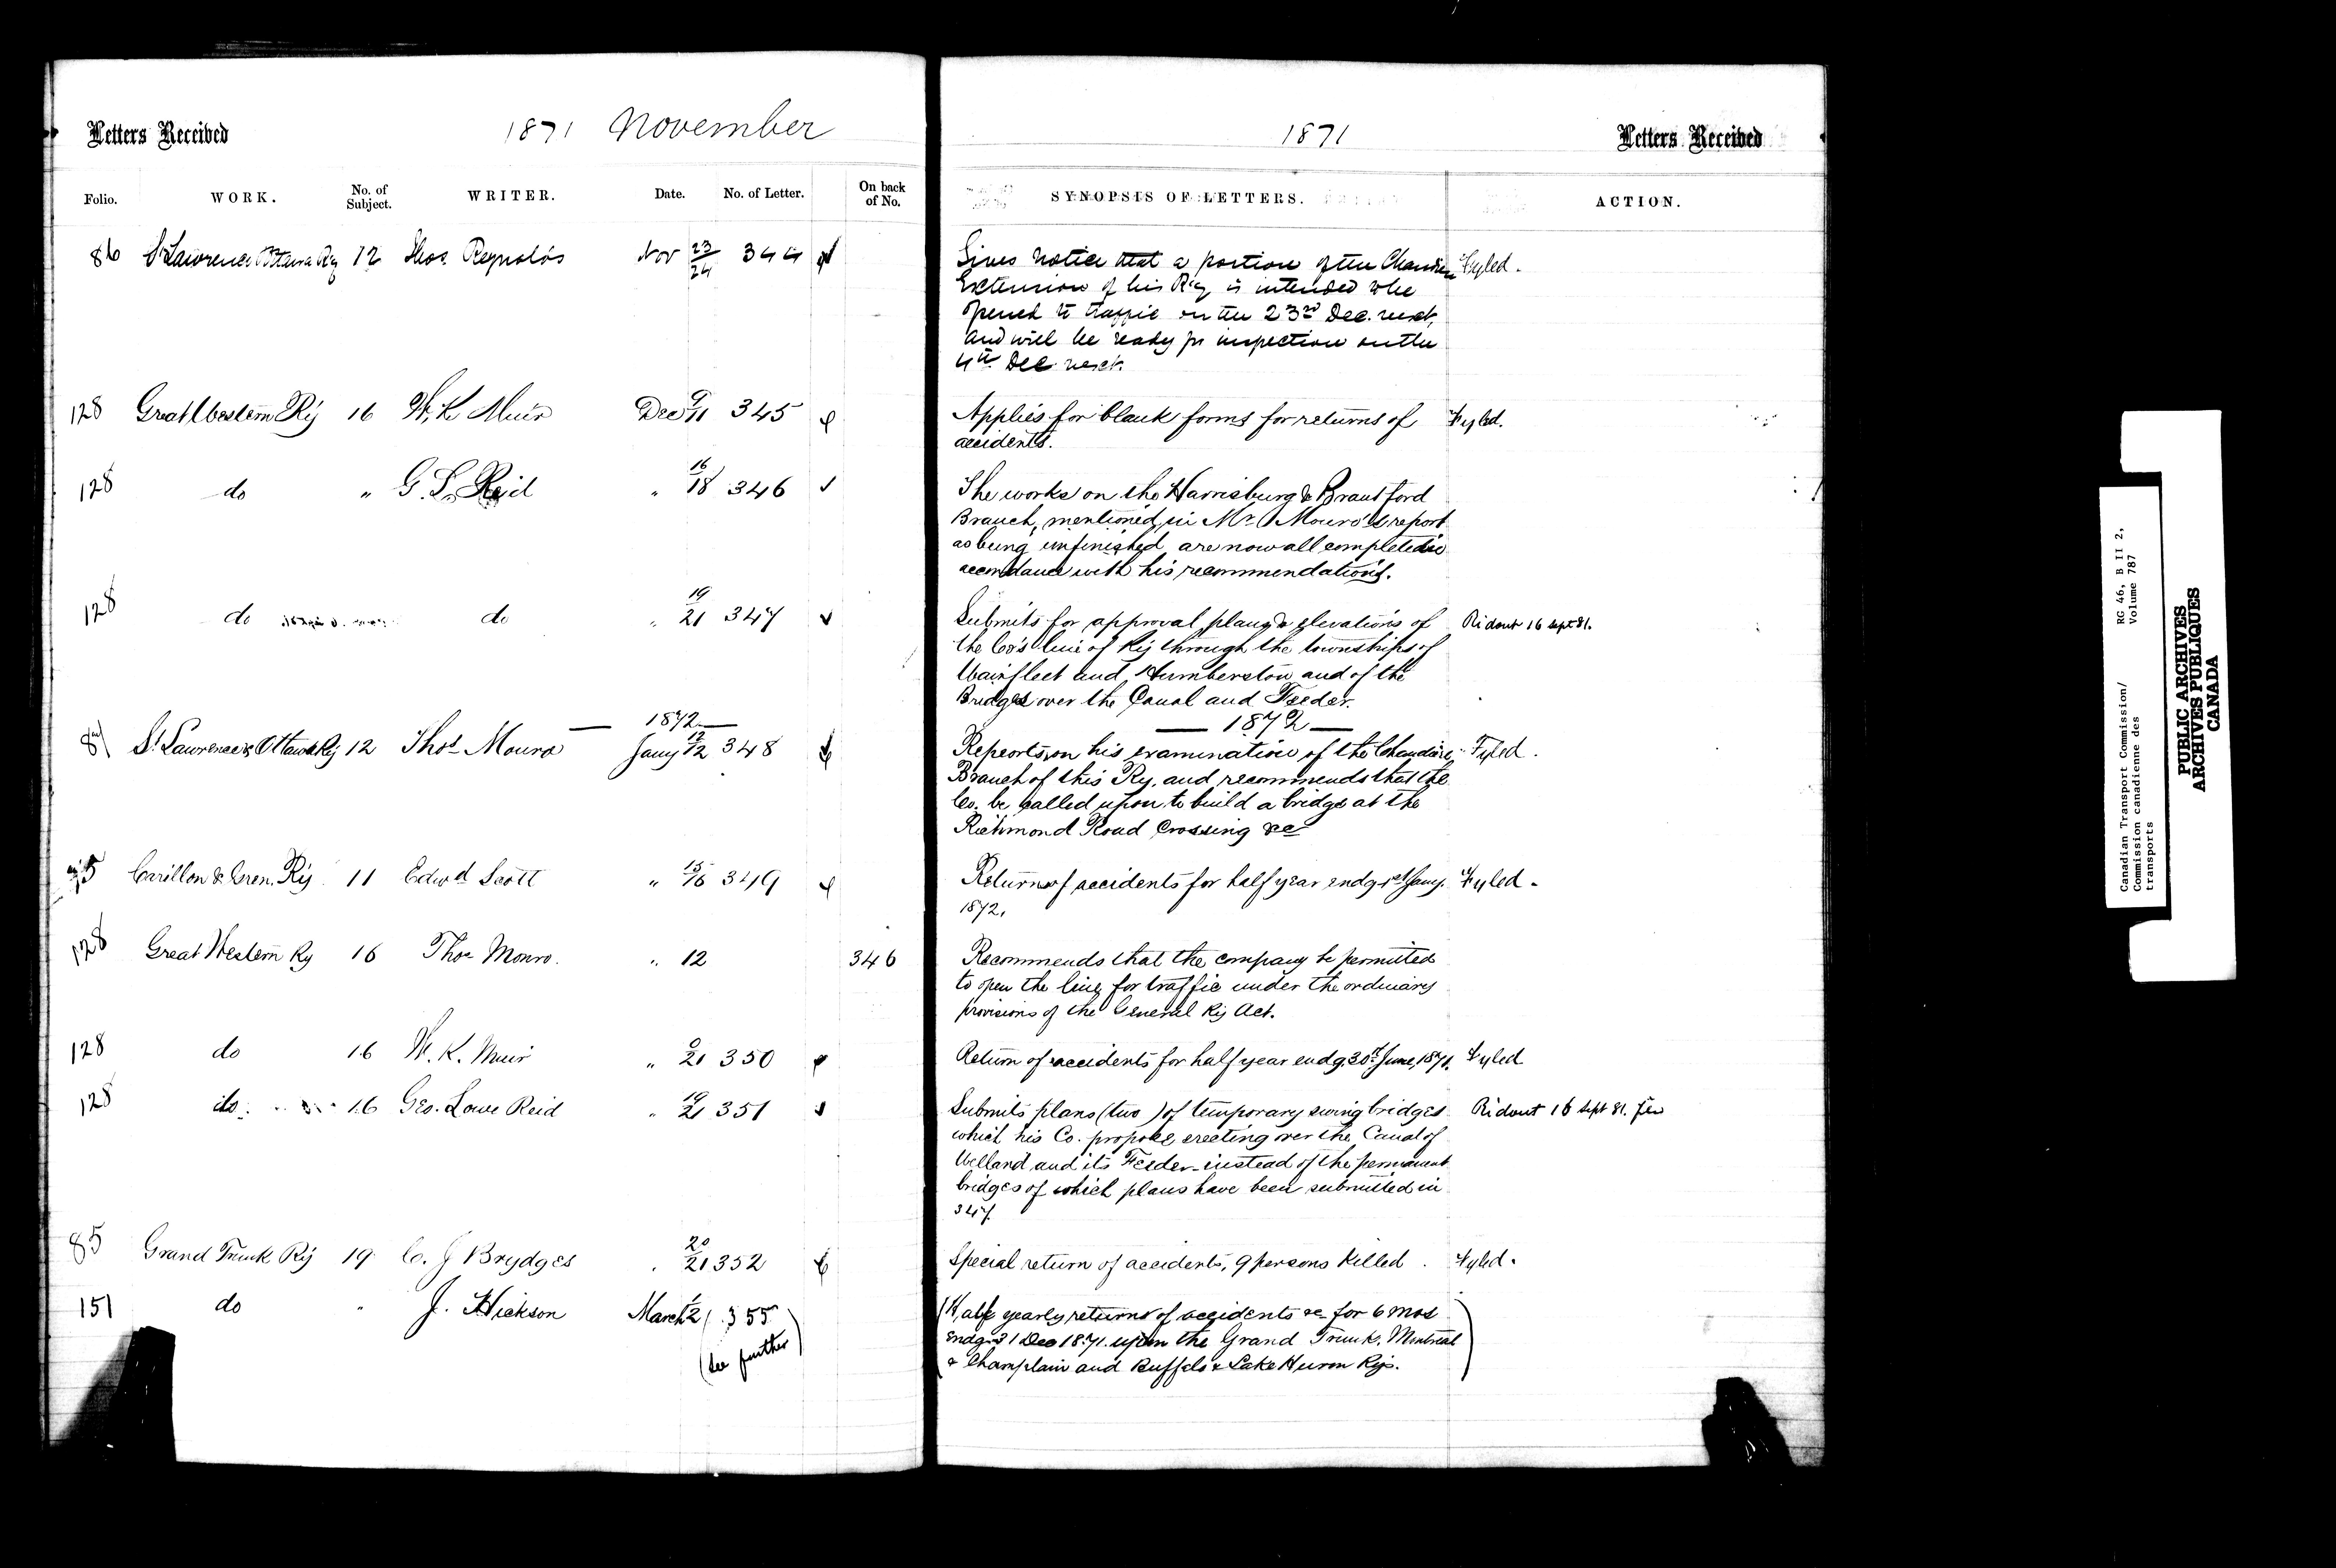 Letters Received 1871 November
Folio. WORK. No. of Subject. WRITER. Date. No. of Letter. On back of No.
86 St Lawrence & Ottawa Ry 12 Thos. Reynolds Nov 23/24 344
128 Great Western Ry 16 W. K. Muir Dec 9/11 345
128 do " G. L. Reid " 16/18 346 ✓
128 do do " 19/21 347 ✓
— 1872 —
St Lawrence & Ottawa Ry 12 Thos Monro Jany 12/12 348
Carillon & Gren. Ry 11 Edwd Scott " 15/16 349
128 Great Western Ry 16 Thos Monro. " 12 346
128 do 16 W. K. Muir " 21 350
128 do 16 Geo. Lowe Reid " 19/21 351 ✓
85 Grand Trunk Ry 19 C. J Brydges 20/21 352
151 do " J. Hickson March 1/2 (355
(See further)
1871 Letters Received
SYNOPSIS OF LETTERS. ACTION.
Gives notice that a portion of the Chaudiere Fyled.
Extension of his Ry is intended to be
opened to traffic on the 23rd Dec. next,
and will be ready for inspection on the
4th Dec. next.
Applies for blank forms for returns of Fyled.
accidents.
The works on the Harrisburg & Brantford
Branch, mentioned in Mr. Monro's report
as being unfinished are now all completed in
accordance with his recommendations.
Submits for approval plans & elevations of Ridout 16 Sept 81.
the Co's line of Ry through the townships of
Wainfleet and Humberston and of the
Bridges over the Canal and Feeder.
— 1872 —
Reports on his examination of the Chaudiere Fyled.
Branch of this Ry. and recommends that the
Co. be called upon to build a bridge at the
Richmond Road Crossing &c
Return of accidents for half year endg 1st Jany. Fyled.
1872.
Recommends that the company be permitted
to open the line for traffic under the ordinary
provisions of the General Ry Act.
Return of accidents for half year endg. 30th June, 1871. Fyled
Submits plans (two) of temporary swing bridges Ridout 16 Sept 81.
which his Co. propose erecting over the Canal of
Welland and its Feeder instead of the permanent
bridges of which plans have been submitted in
347.
Special return of accidents, 9 persons killed. Fyled.
(Half yearly returns of accidents &c for 6 mos
endg 31 Dec 1871. upon the Grand Trunk, Montreal
& Champlain and Buffalo & Lake Huron Rys.)
RG 46, B II 2,
Volume 787
Canadian Transport Commission/
Commission canadienne des
transports
PUBLIC ARCHIVES
ARCHIVES PUBLIQUES
CANADA